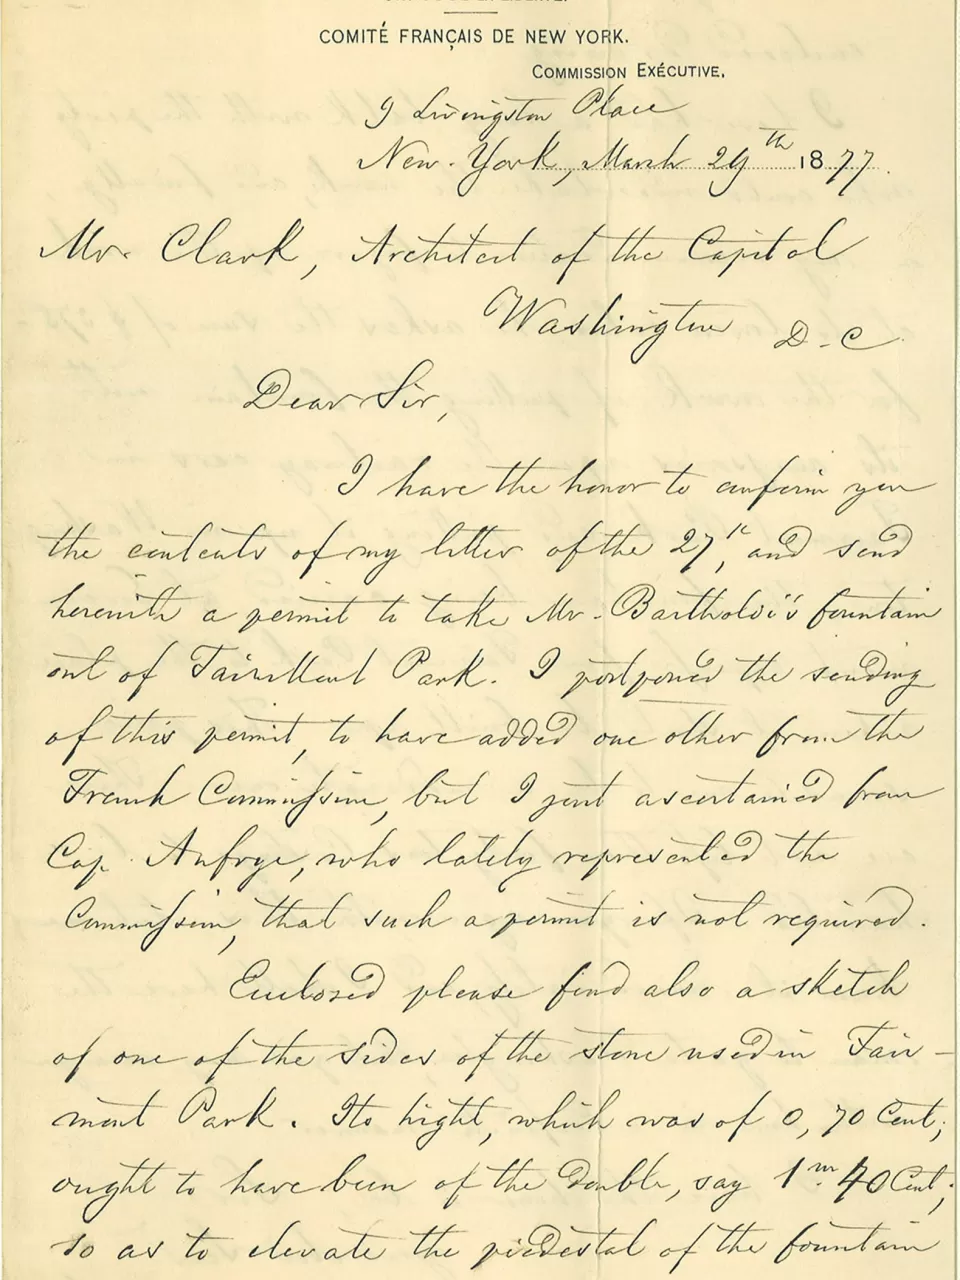 COMITÉ FRANÇAIS DE NEW YORK.
COMMISSION EXÉCUTIVE,
9 Livingston Place
New-York, March 29th 1877.
Mr. Clark, Architect of the Capitol
Washington D-C
Dear Sir,
I have the honor to confirm you
the contents of my letter of the 27th, and send
herewith a permit to take Mr. Bartholdi's fountain
out of Park. I postponed the sending
of this permit, to have added one other from the
French Commission, but I just ascertained from
Cap. Anfrye, who lately represented the
Commission, that such a permit is not required.
Enclosed please find also a sketch
of one of the sides of the stone used in Fair-
mont Park. Its hight, which was of 0,70 Cent;
ought to have been of the double, say 1m. 40 Cent;
so as to elevate the piedestal of the fountain